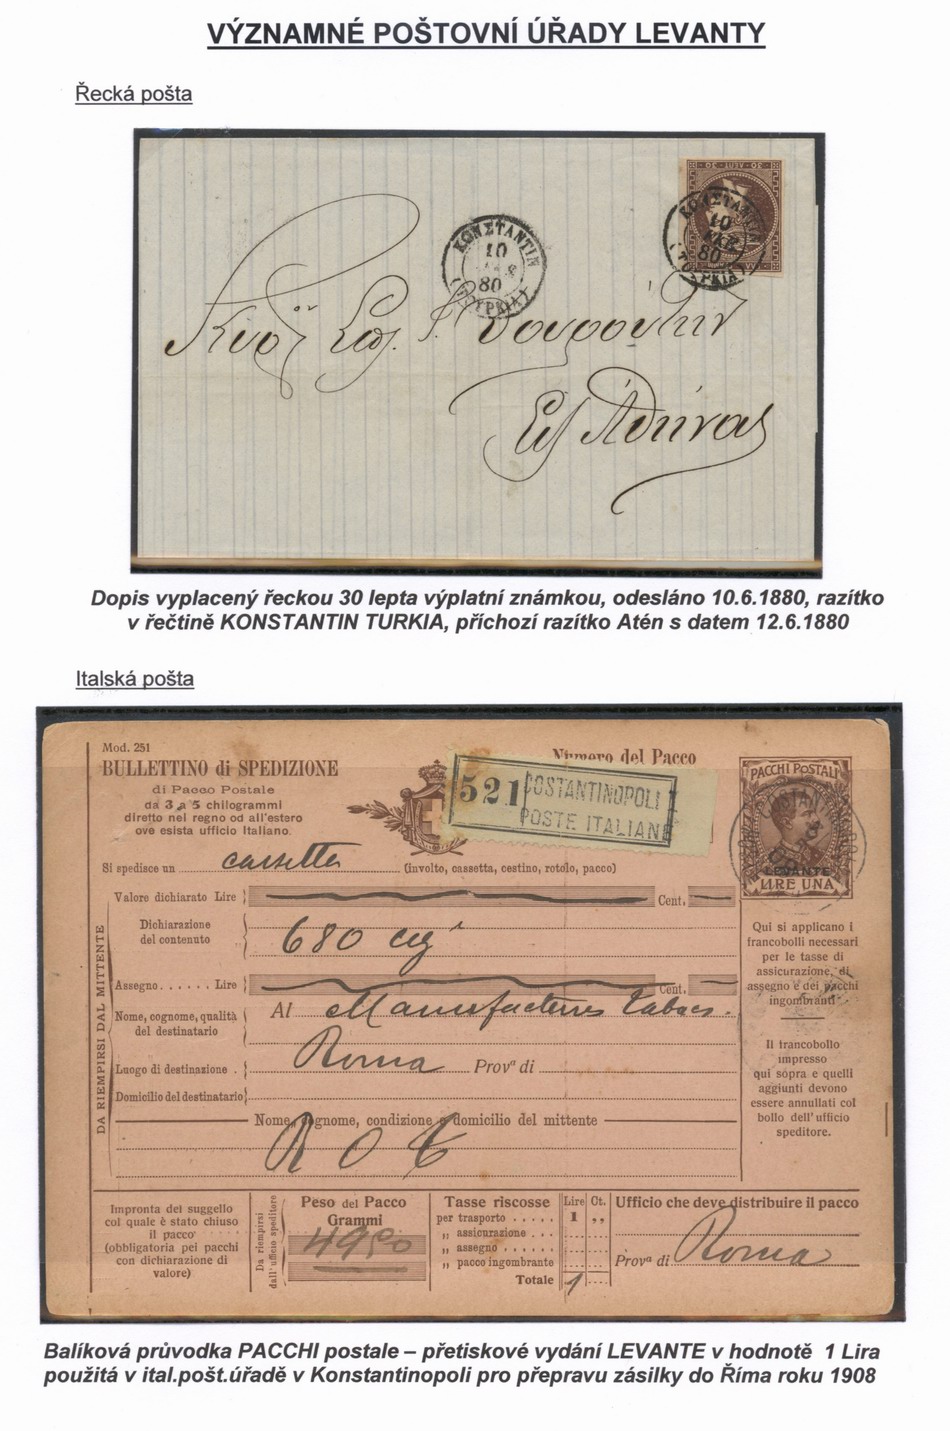 VÝZNAMNÉ POŠTOVNÍ ÚŘADY LEVANTY
Řecká pošta
30 ΛΕΠΤ. 30
ΚΩΝΣΤΑΝΤΙΝ
10
80
(ΤΟΥΡΚΙΑ)
ΚΩΝΣΤΑΝΤΙΝ
10
80
(ΤΟΥΡΚΙΑ)
Εἰς Ἀθήνας
Dopis vyplacený řeckou 30 lepta výplatní známkou, odesláno 10.6.1880, razítko
v řečtině KONSTANTIN TURKIA, příchozí razítko Atén s datem 12.6.1880
Italská pošta
Mod. 251
BULLETTINO di SPEDIZIONE
di Pacco Postale
da 3 a 5 chilogrammi
diretto nel regno od all'estero
ove esista ufficio Italiano.
Numero del Pacco
521 COSTANTINOPOLI 1
POSTE ITALIANE
PACCHI POSTALI
LEVANTE
LIRE UNA
Si spedisce un cassetta (involto, cassetta, cestino, rotolo, pacco)
Valore dichiarato Lire Cent.
Dichiarazione
del contenuto 680
Assegno...... Lire Cent.
Nome, cognome, qualità
del destinatario Al Manufactures Tabacs.
Luogo di destinazione . Roma Provª di
Domicilio del destinatario
Nome, cognome, condizione e domicilio del mittente
DA RIEMPIRSI DAL MITTENTE
Qui si applicano i
francobolli necessari
per le tasse di
assicurazione, di
assegno e dei pacchi
ingombranti
Il francobollo
impresso
qui sopra e quelli
aggiunti devono
essere annullati col
bollo dell'ufficio
speditore.
Impronta del suggello
col quale è stato chiuso
il pacco
(obbligatoria pei pacchi
con dichiarazione di
valore)
Da riempirsi
dall'ufficio speditore
Peso del Pacco
Grammi
4950
Tasse riscosse Lire Ct.
per trasporto ..... 1 „
„ assicurazione ..
„ assegno ......
„ pacco ingombrante
Totale 1
Ufficio che deve distribuire il pacco
Provª di Roma
Balíková průvodka PACCHI postale – přetiskové vydání LEVANTE v hodnotě 1 Lira
použitá v ital.pošt.úřadě v Konstantinopoli pro přepravu zásilky do Říma roku 1908